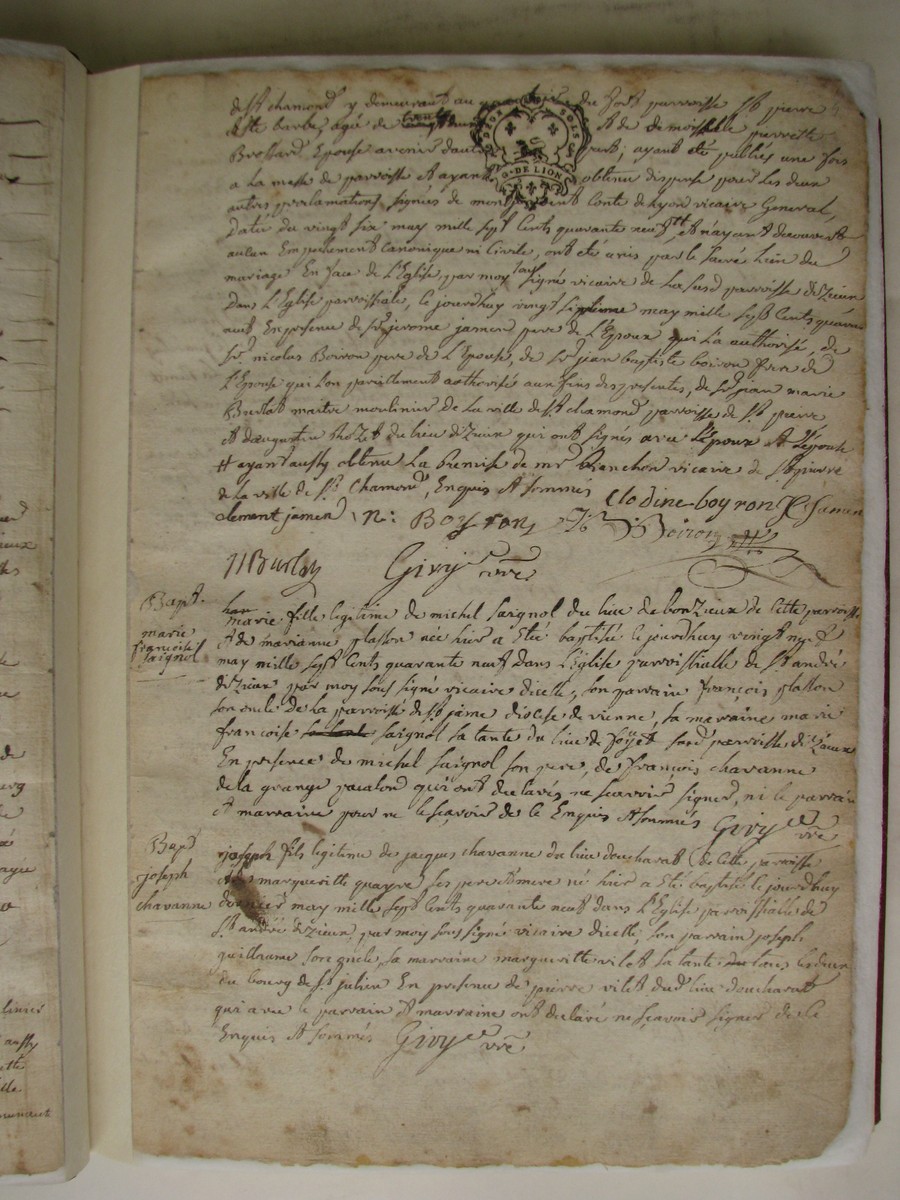 de st chamond y demeurant au du fort parroisse st pierre
et ste barbe, agé de et de demoiselle pierrette
Brossard Epouse avenir d'autre part; ayant eté publiés une fois
a la messe de parroisse et ayant obtenu dispense pour les deux
autres proclamations signées de Comte de Lyon vicaire General,
Daté du vingt six may mille sept Cents quarante neuf, et n'ayant decouvert
aulcun Empechement canonique ni Civile, ont eté unis par le sacré lien du
mariage En face de L'Eglise par moy sous signé vicaire de parroisse d'izieux
dans L'Eglise parroissiale, le jourdhuy vingt septieme may mille sept Cents quarante
neuf En presence de sr jerome jamen pere de L'Epoux qui La authorisé, de
sr nicolas Boiron pere de L'Epouse, de sr jean baptiste boiron frere de
L'Epouse qui L'on pareillement authorisée aux fins des presentes, de sr jean marie
Burlat maitre moulinier de la ville de st chamond parroisse de st pierre
et d'augustin du lieu d'izieux qui ont signés avec L'epoux et L'épouse
# ayant aussy obtenu La Remise de mr Planchon vicaire de st pierre
de la ville de st Chamond, Enquis et sommés Clodine-boyron J Jamen
clement jamen N: Boyron JB: Boiron
JJ Burlat Givry vre
Bapt.
marie
francoise
saignol
marie fille legitime de michel saignol du lieu de bonZieux de cette parroisse
et de marianne glasson née hier a Eté baptisée le jourdhuy vingt
may mille sept Cents quarante neuf dans L'Eglise parroissialle de st andré
d'izieux par moy sous signé vicaire dicelle, son parrain françois glasson
son oncle de la parroisse de st jame diocese de vienne, sa marraine marie
francoise saignol sa tante du lieu de parroisse d'izieux
En presence de michel saignol son pere, de françois chavanne
de la grange pacalon qui ont declarés ne scavoir signer, ni le parrain
et marraine pour ne le scavoir de ce Enquis et sommés Givry vre
Bapt
joseph
chavanne
joseph fils legitime de jacques chavanne du lieu doucharat de cette parroisse
et de margueritte quayre ses pere et mere né hier a Eté baptisé le jourdhuy
dernier may mille sept Cents quarante neuf dans L'Eglise parroissialle de
st andré d'izieux, par moy sous signé vicaire dicelle, son parrain joseph
guillaume son oncle, sa marraine margueritte vilet sa tante tous les deux
du bourg de st julien En presence de pierre vilet dud lieu doucharat
qui avec le parrain et marraine ont declaré ne scavoir signer de ce
Enquis et sommés Givry vre
G. DE LION